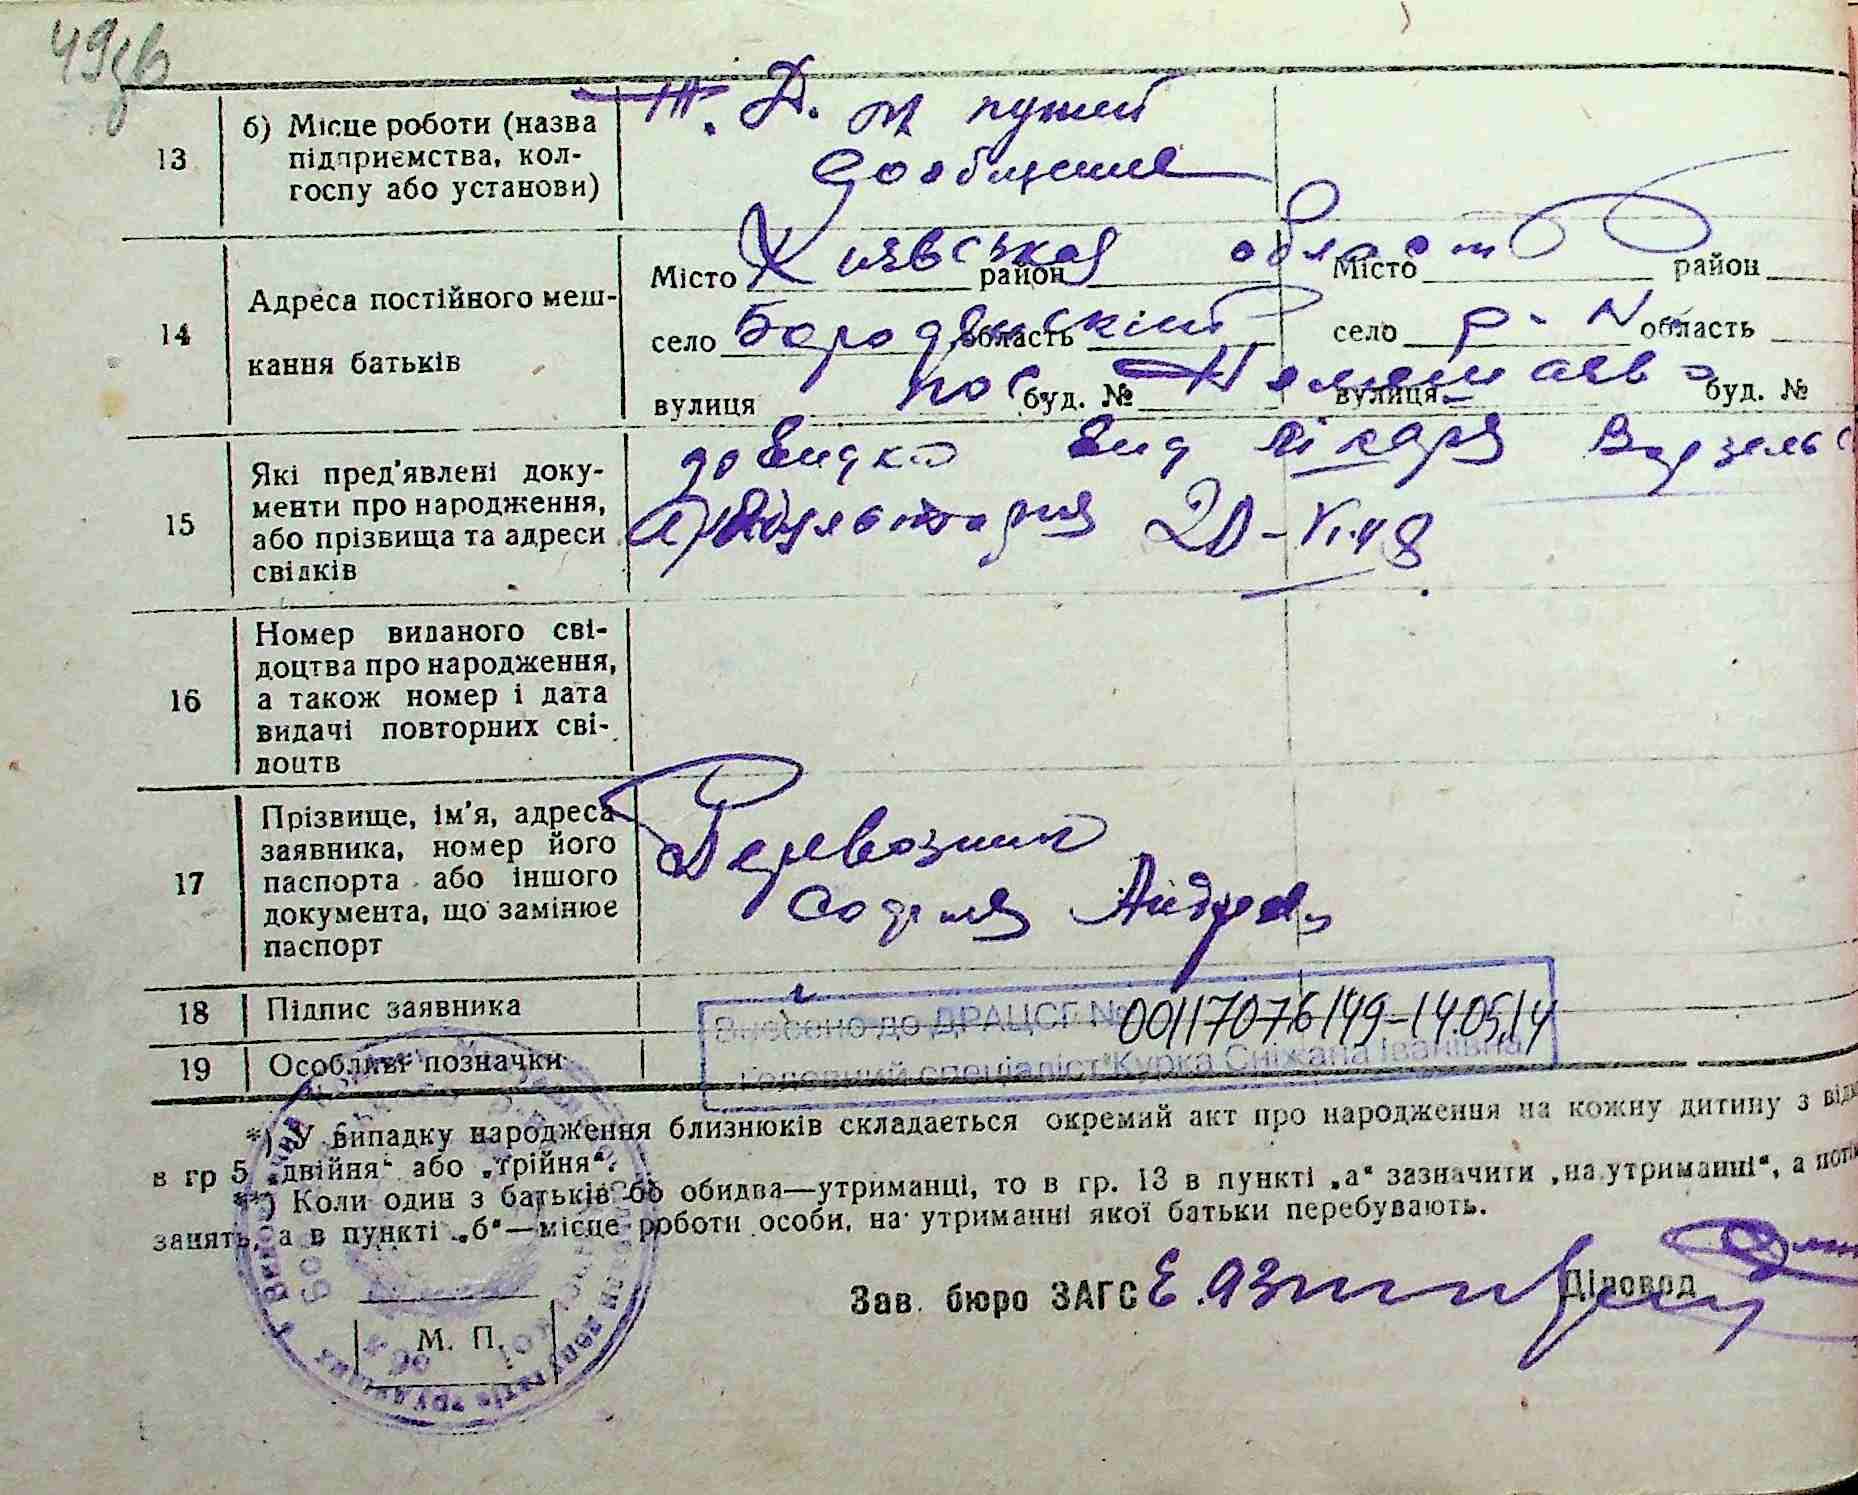 49зв
13
б) Місце роботи (назва
підприємства, кол-
госпу або установи)
Ж. Д. м путей
сообщение
14
Адреса постійного меш-
кання батьків
Місто Киевская район область Місто район
село Бородянский область село р-N область
вулиця пос буд. № Немешаево вулиця буд. №
15
Які пред'явлені доку-
менти про народження,
або прізвища та адреси
свідків
довидка вид лікаря Ворзельс
20-VI.49
16
Номер виданого сві-
доцтва про народження,
а також номер і дата
видачі повторних сві-
доцтв
17
Прізвище, ім'я, адреса
заявника, номер його
паспорта або іншого
документа, що замінює
паспорт
Перевозник
София Андреев
18
Підпис заявника
Внесено до ДРАЦСГ № 00117076149-14.05.14
Головний спеціаліст Курка Сніжана Іванівна
19
Особливі позначки
*) У випадку народження близнюків складається окремий акт про народження на кожну дитину з відм
в гр 5 „двійня“ або „трійня“.
**) Коли один з батьків бо обидва—утриманці, то в гр. 13 в пункті „а“ зазначити „на утриманні“, а потім
занять, а в пункті „б“—місце роботи особи, на утриманні якої батьки перебувають.
Зав. бюро ЗАГС Діловод
М. П.